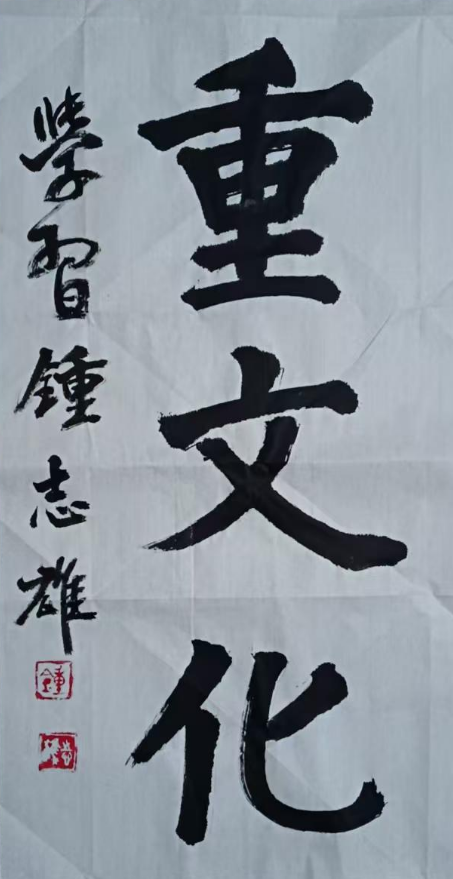 重文化
學習鍾志雄
鍾